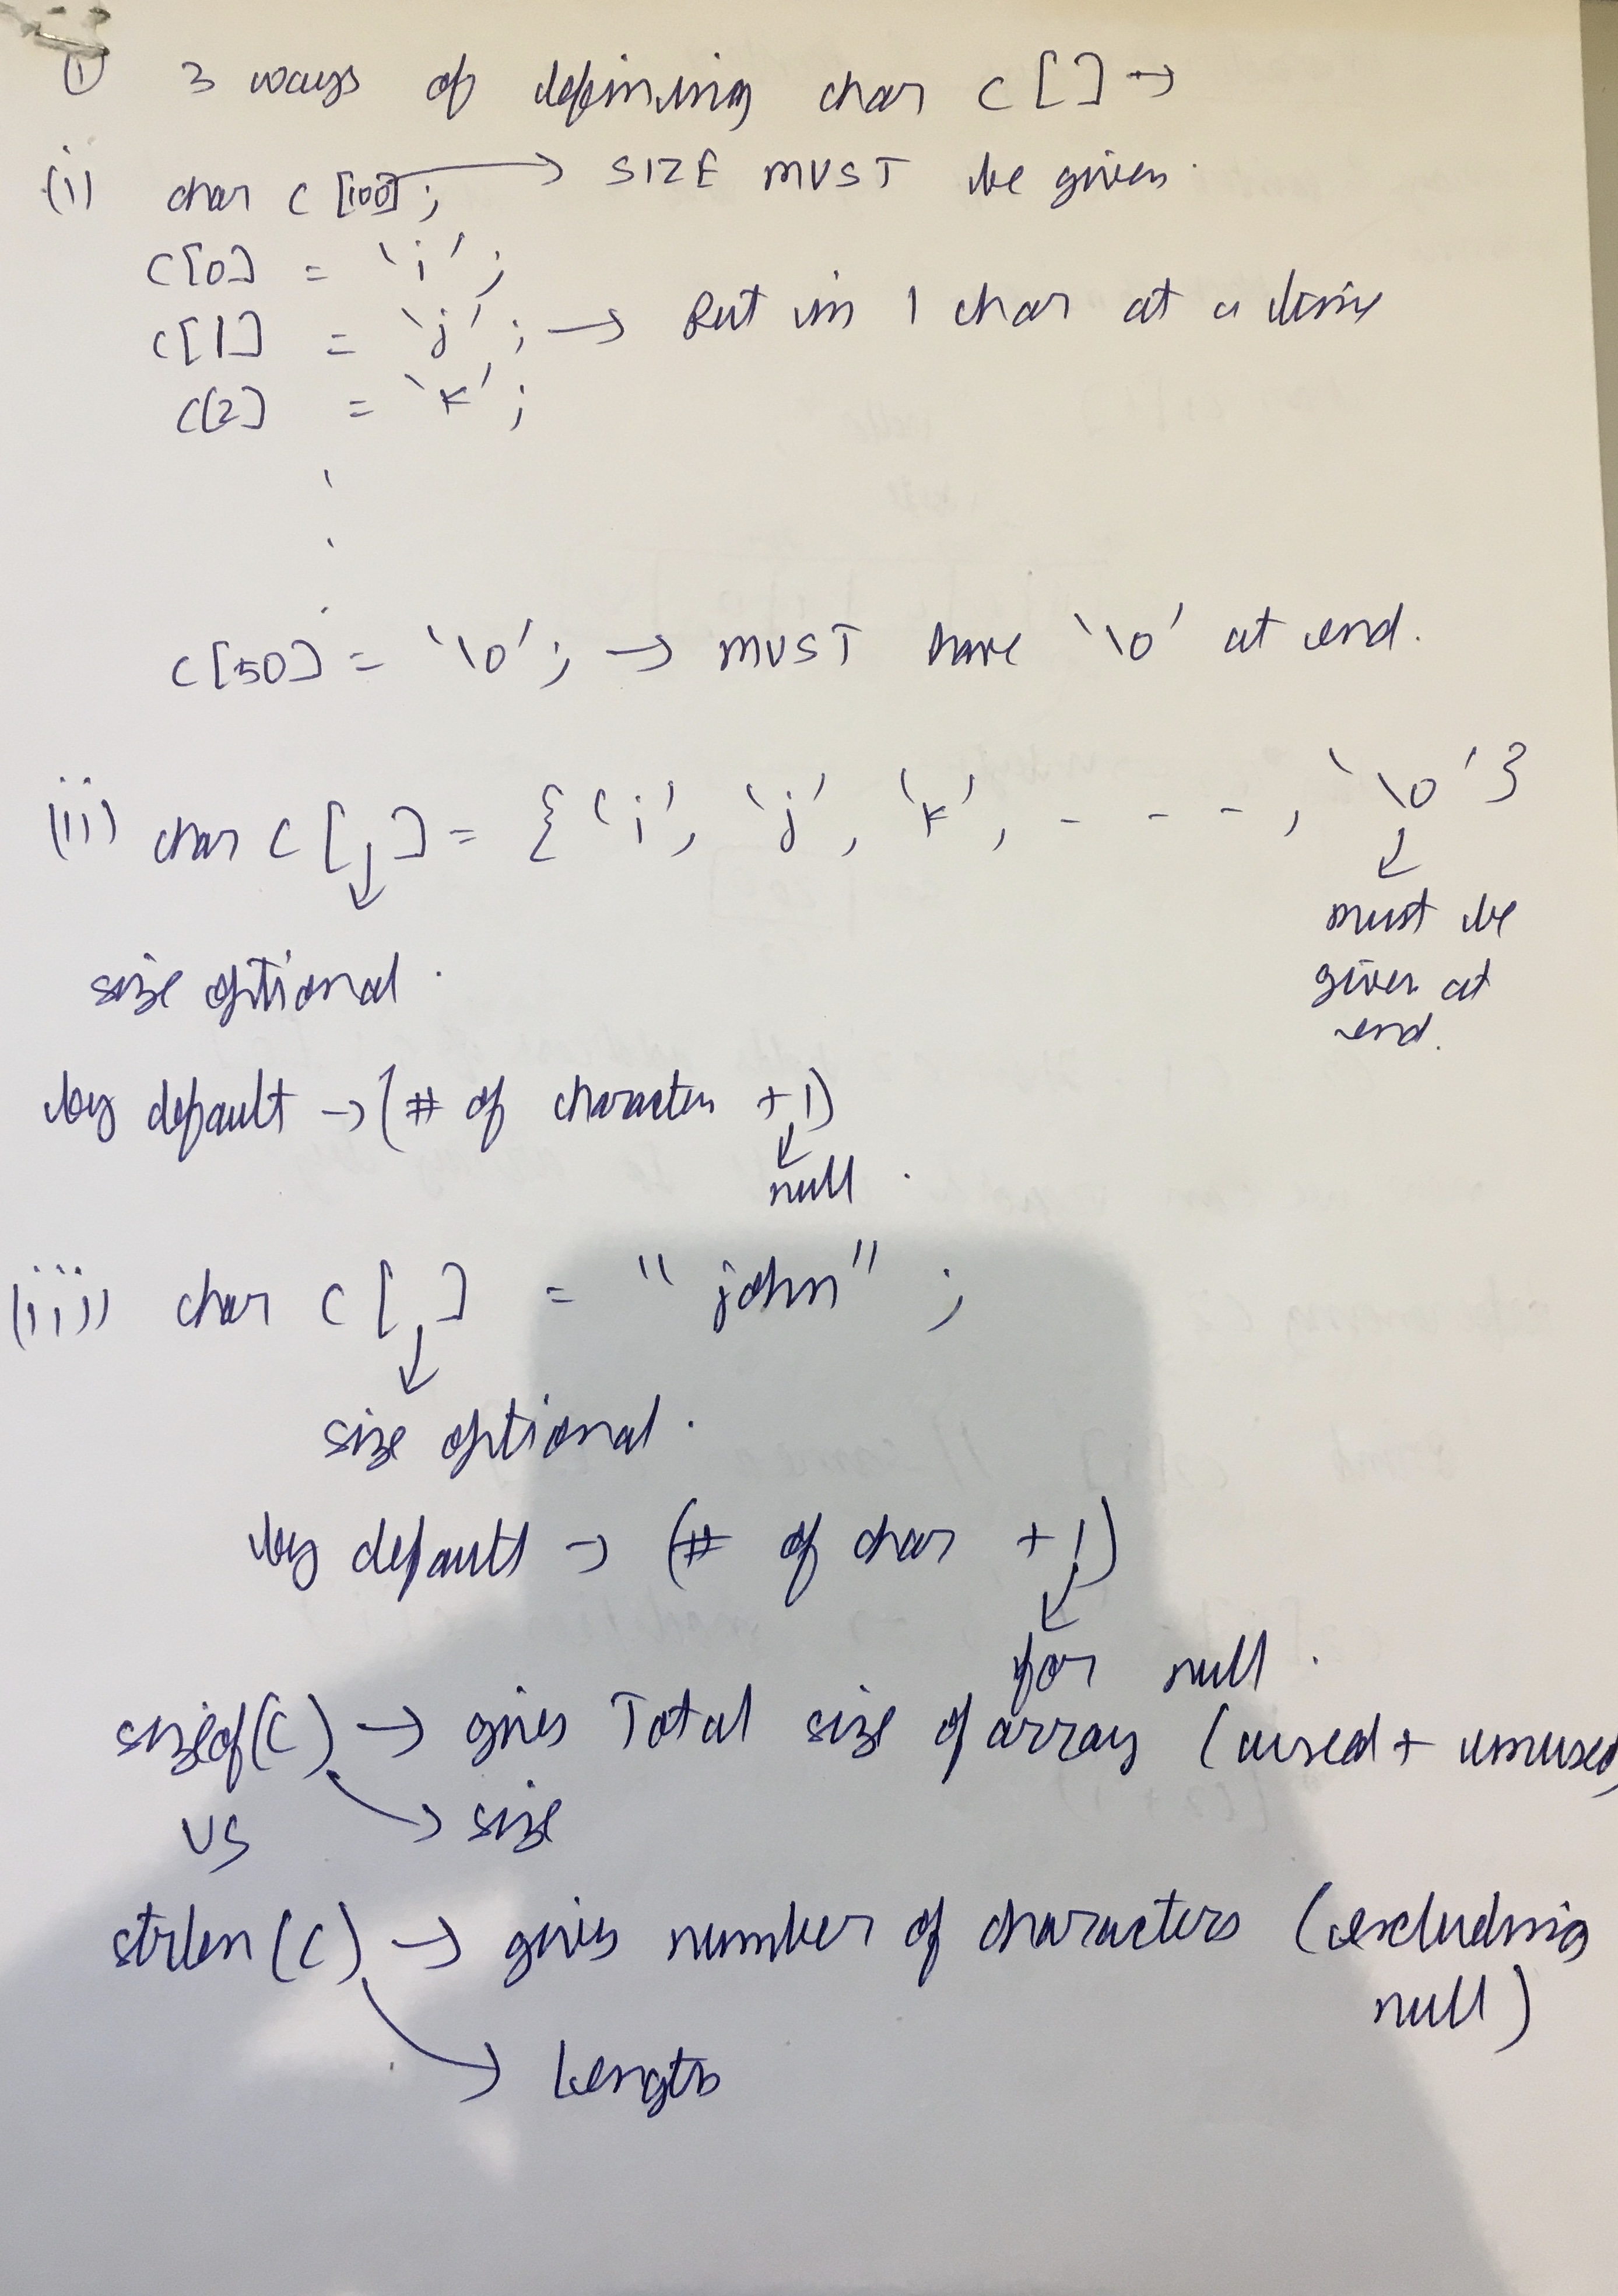 ① 3 ways of defining char c [] →
(i) char c [100]; → SIZE MUST be given.
c[0] = 'i';
c[1] = 'j'; → Put in 1 char at a time
c[2] = 'k';
c[50] = '\0'; → MUST have '\0' at end.
(ii) char c [ ] = {'i', 'j', 'k', - - - , '\0'}
must be
given at
end.
size optional.
by default → (# of character +1)
null.
(iii) char c [ ] = "john";
size optional.
by default → (# of char +1)
for null.
sizeof(c) → gives Total size of array (used + unused)
→ size
VS
strlen(c) → gives number of characters (excluding
null)
→ Length